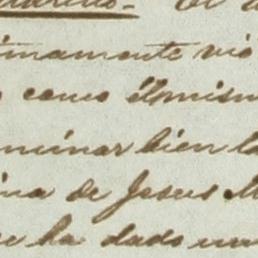 timamente vió
como él mism
minar bien la
ina de Jesus M
e ha dado un